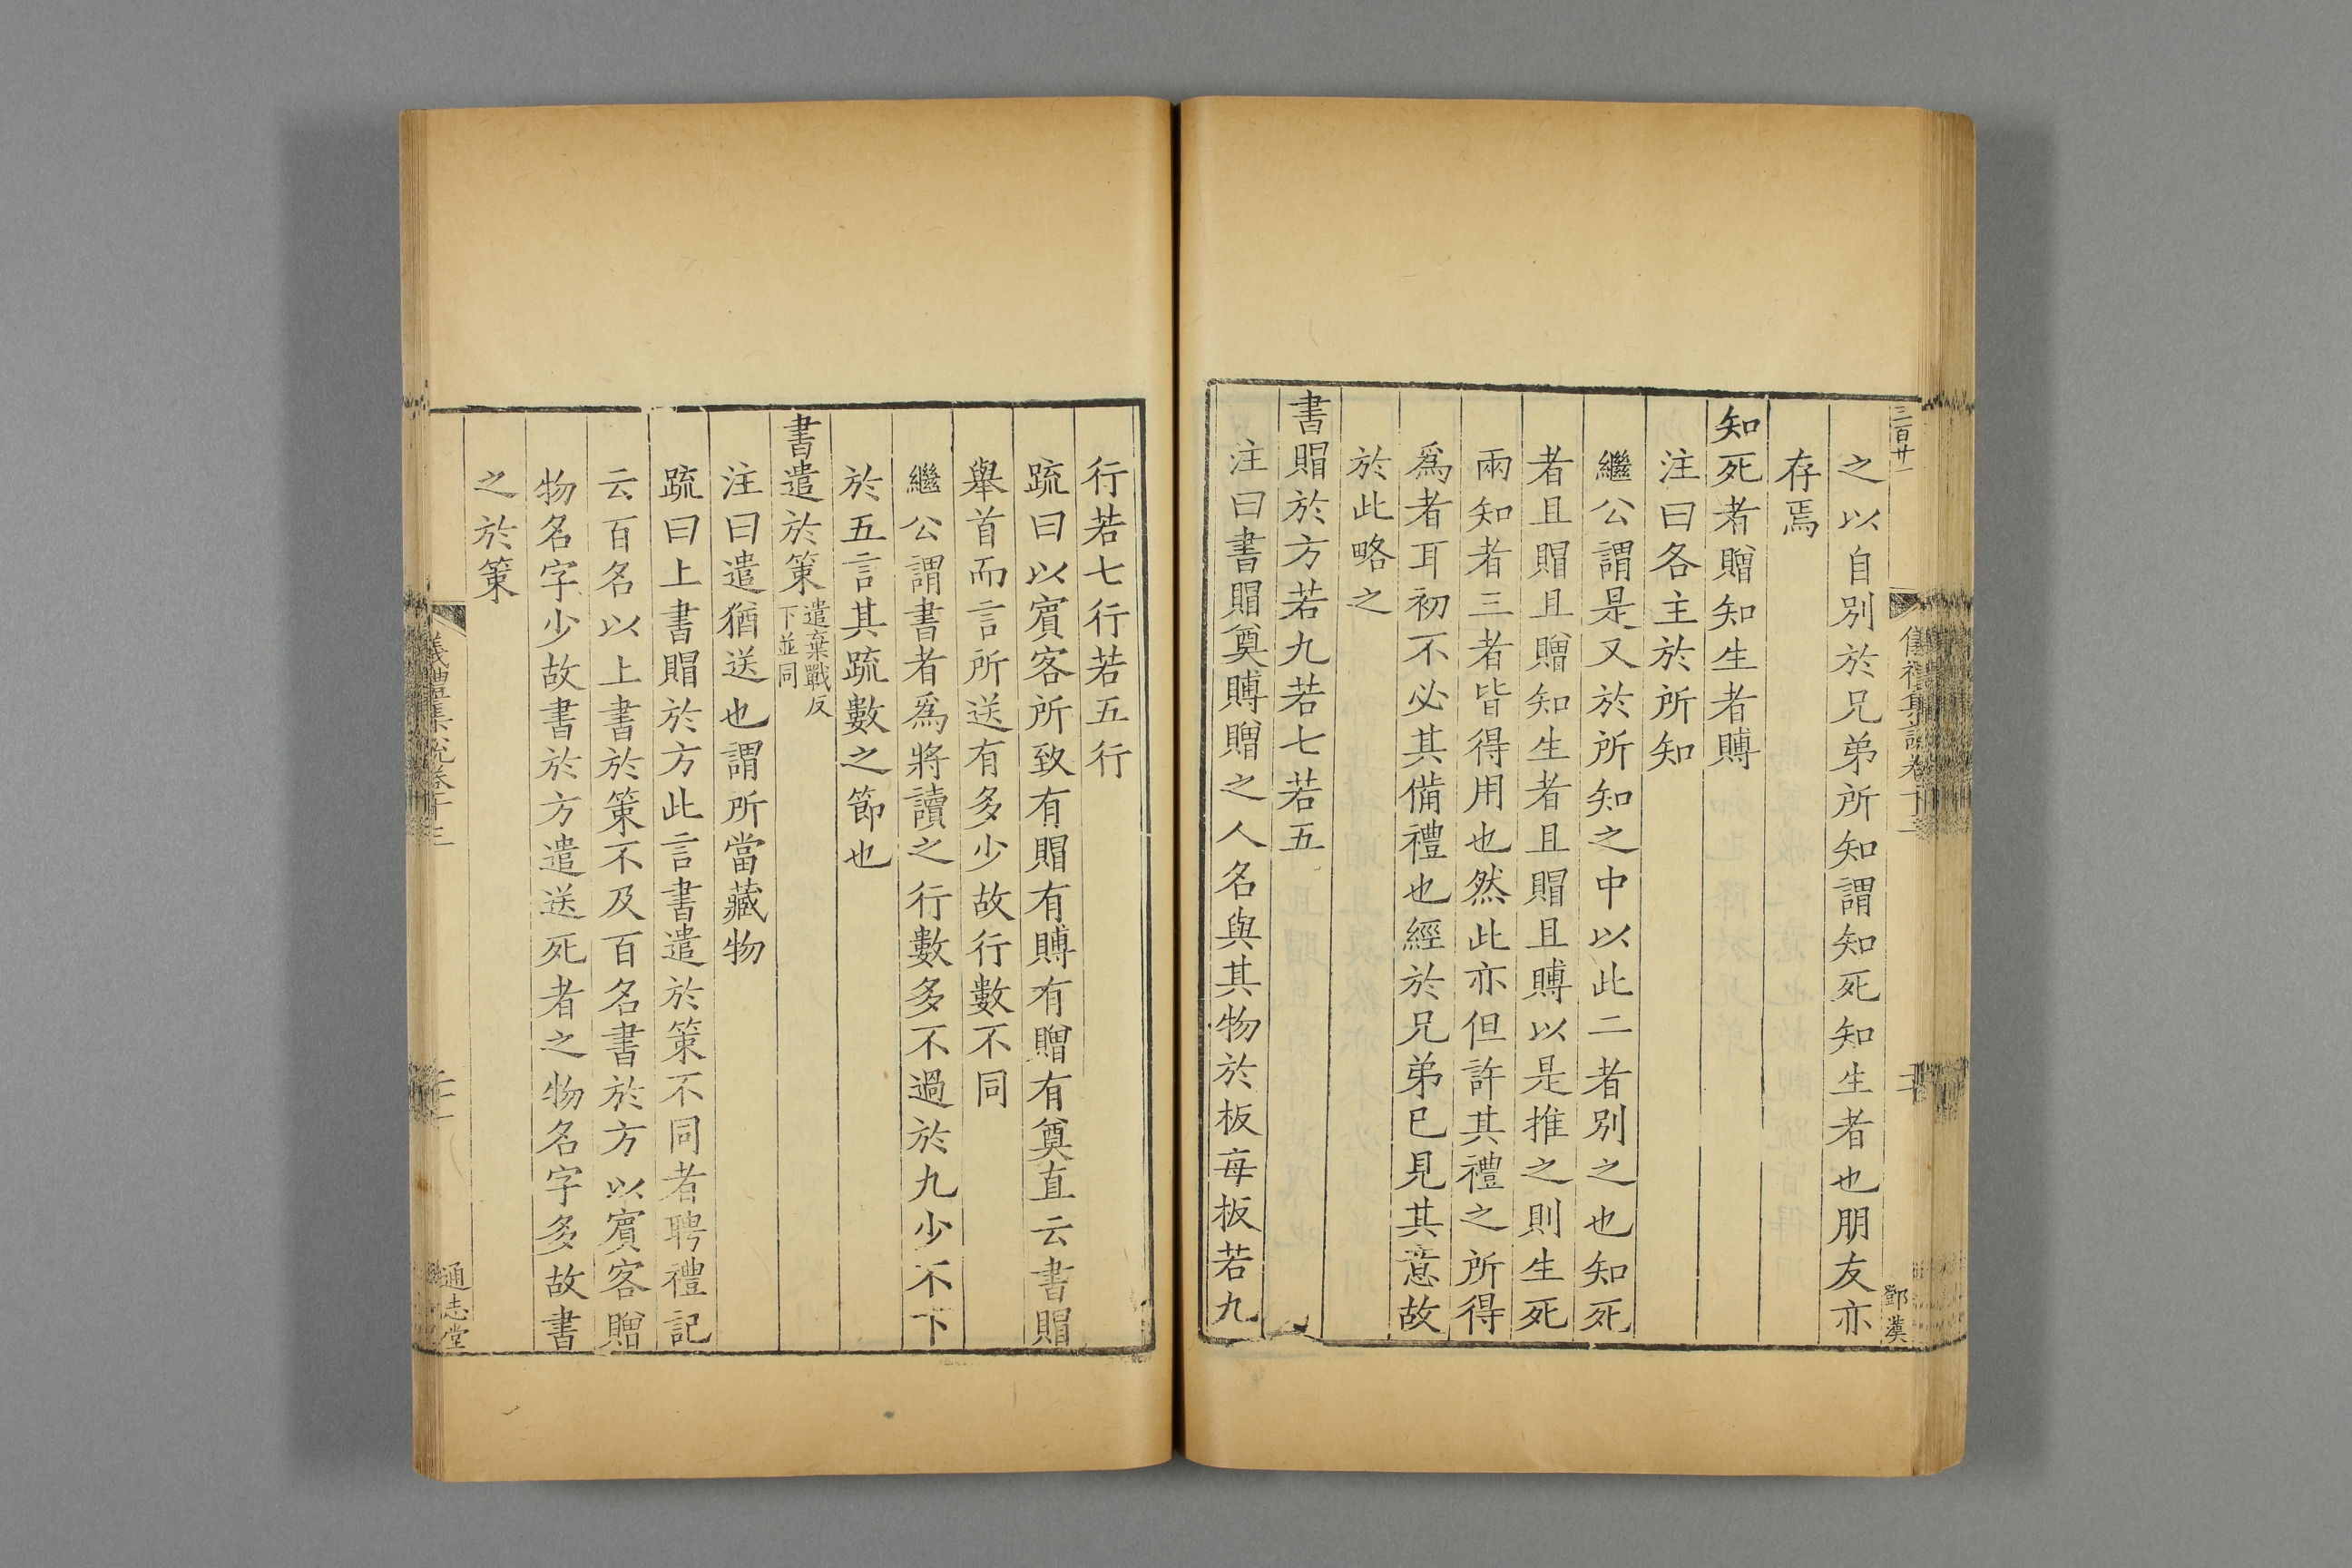 三百廿一
儀禮集說卷十三
二十
鄧漢
之以自別於兄弟所知謂知死知生者也朋友亦
存焉
知死者贈知生者賻
注曰各主於所知
繼公謂是又於所知之中以此二者別之也知死
者且賵且贈知生者且賵且賻以是推之則生死
兩知者三者皆得用也然此亦但許其禮之所得
爲者耳初不必其備禮也經於兄弟已見其意故
於此略之
書賵於方若九若七若五
注曰書賵奠賻贈之人名與其物於板每板若九
行若七行若五行
疏曰以賓客所致有賵有賻有贈有奠直云書賵
舉首而言所送有多少故行數不同
繼公謂書者爲將讀之行數多不過於九少不下
於五言其疏數之節也
書遣於策遣棄戰反下並同
注曰遣猶送也謂所當藏物
疏曰上書賵於方此言書遣於策不同者聘禮記
云百名以上書於策不及百名書於方以賓客贈
物名字少故書於方遣送死者之物名字多故書
之於策
儀禮集說卷十三
通志堂